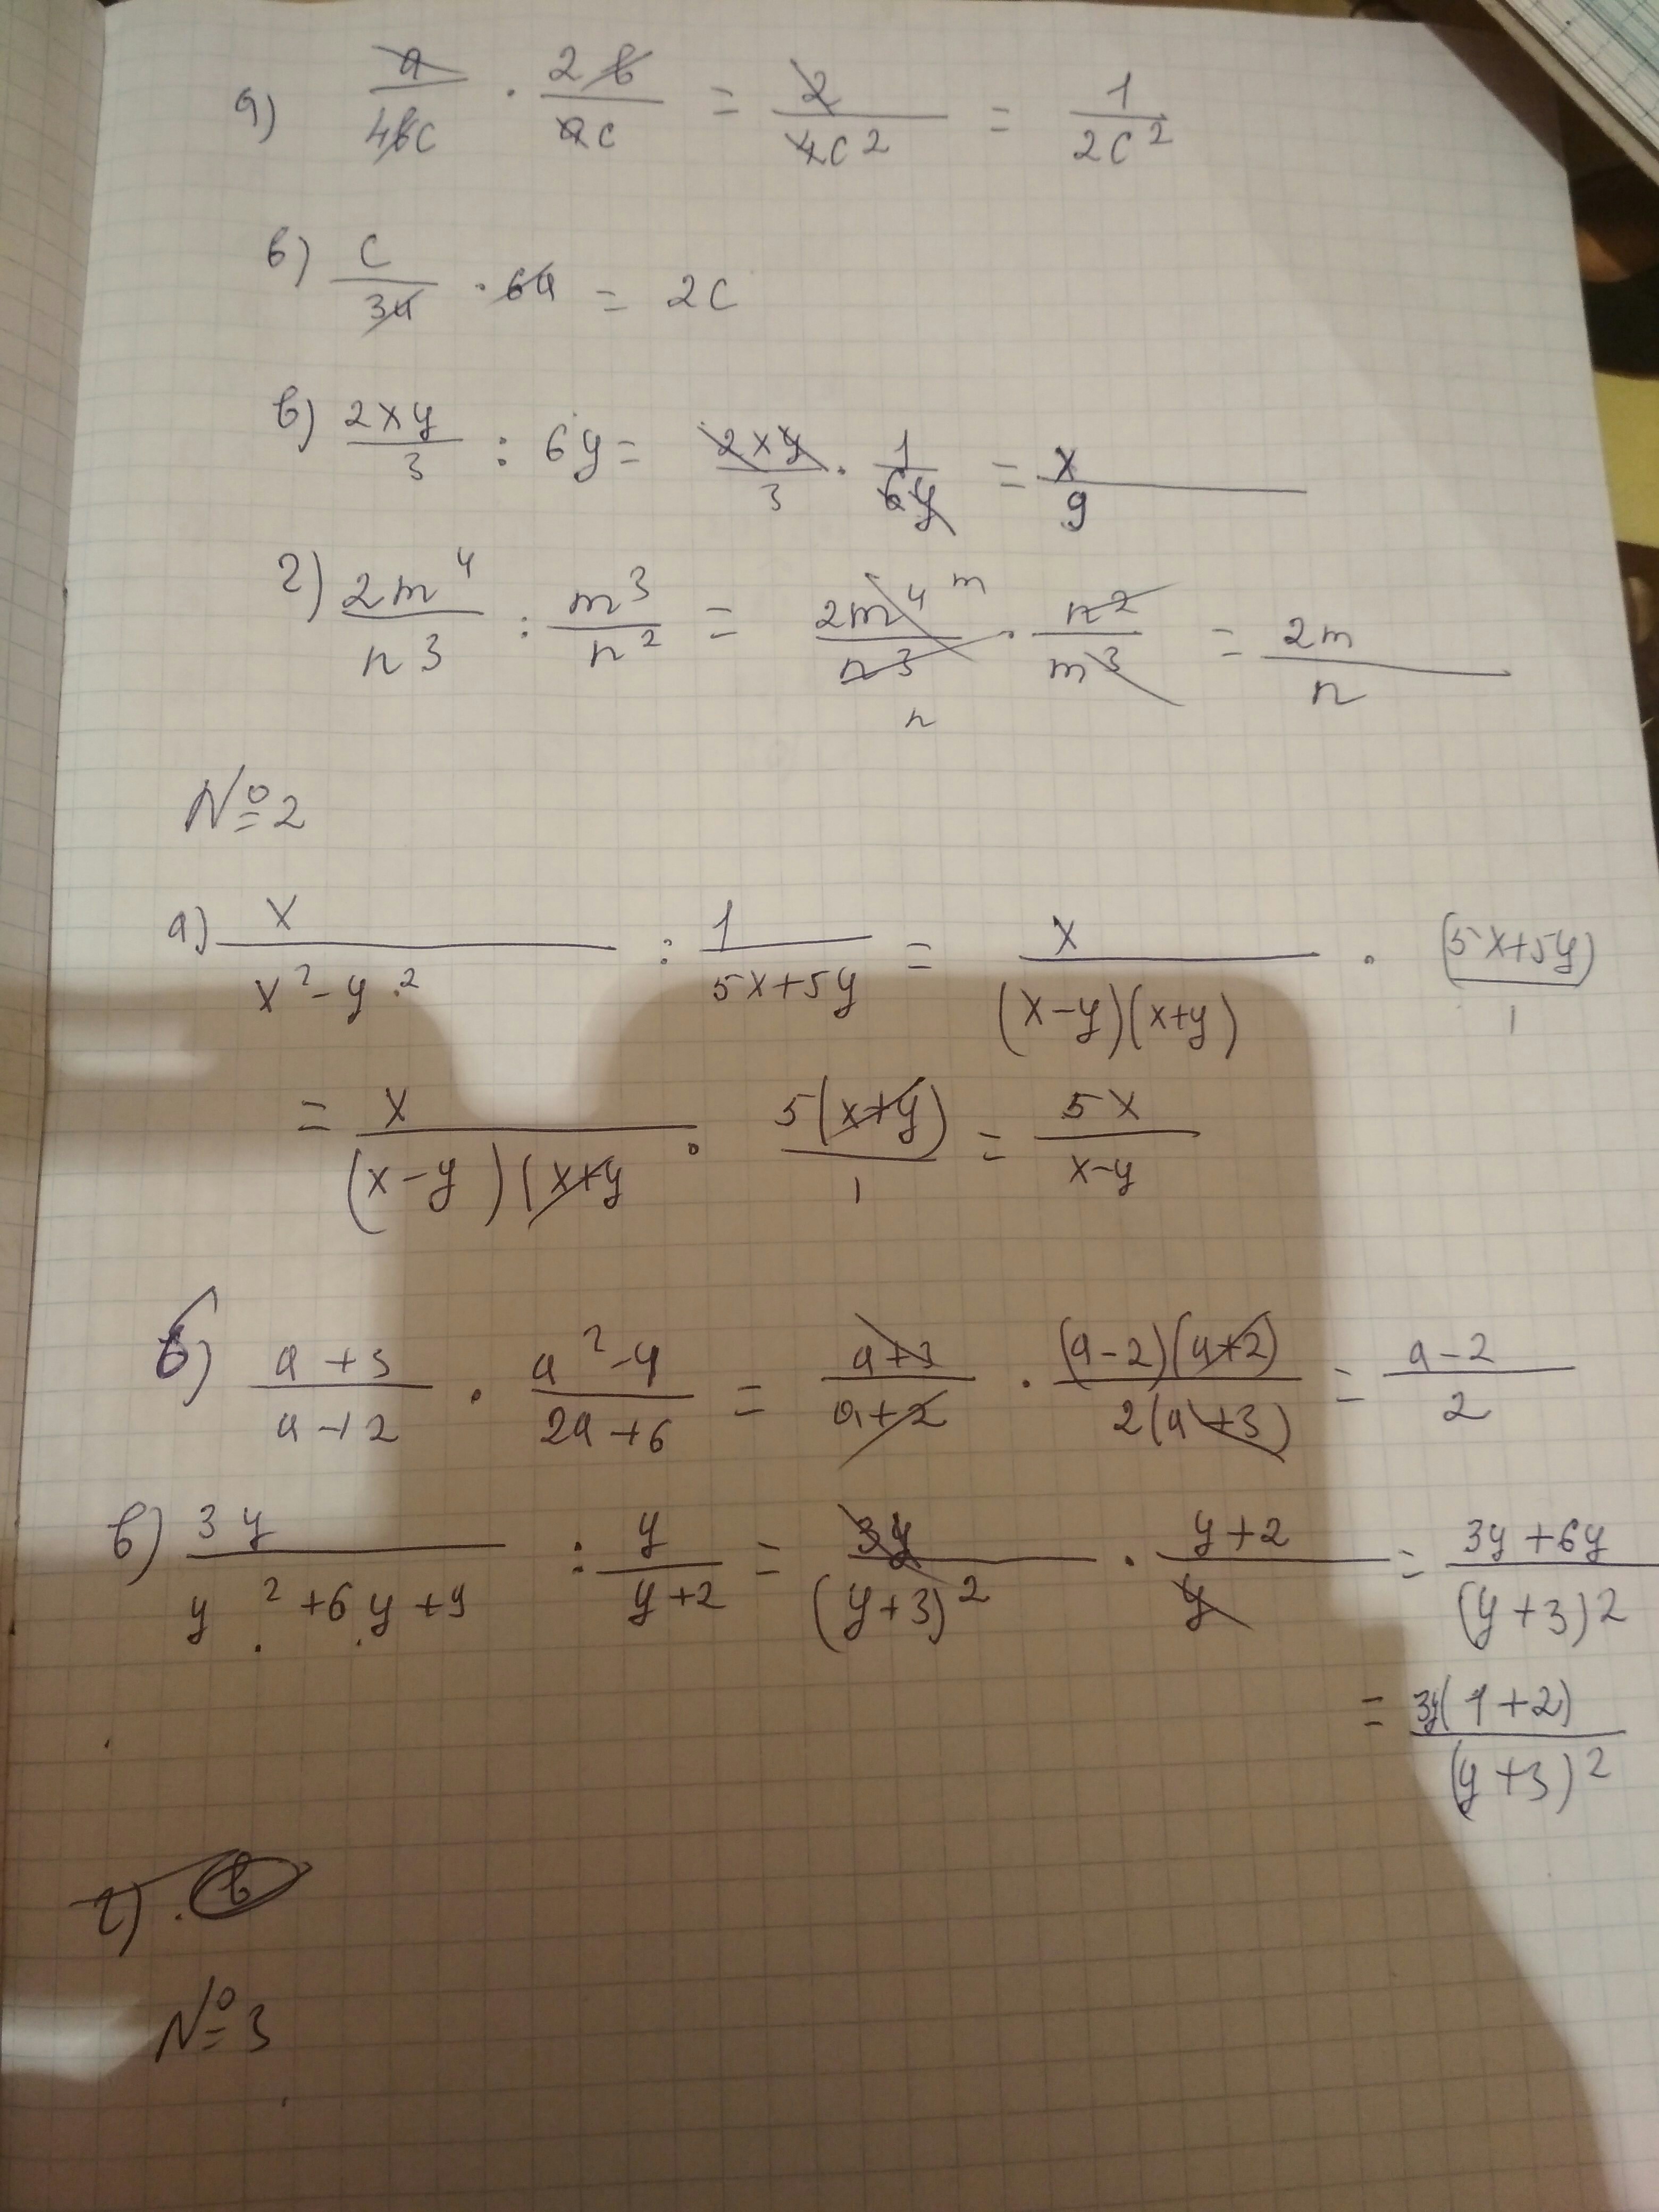 а) a/4bc · 2b/ac = 2/4c² = 1/2c²
б) c/3a · 6a = 2c
в) 2xy/3 : 6y = 2xy/3 · 1/6y = x/9
г) 2m⁴/n³ : m³/n² = 2m⁴ m/n³ n · n²/m³ = 2m/n
№2
а) x/x²-y² : 1/5x+5y = x/(x-y)(x+y) · (5x+5y)/1
= x/(x-y)(x+y · 5(x+y)/1 = 5x/x-y
б) a+3/a+2 · a²-4/2a+6 = a+3/a+2 · (a-2)(a+2)/2(a+3) = a-2/2
в) 3y/y²+6y+9 : y/y+2 = 3y/(y+3)² · y+2/y = 3y+6y/(y+3)²
= 3y(1+2)/(y+3)²
г)
№3